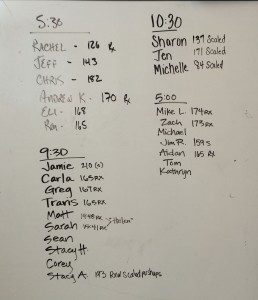 5:30
RACHEL - 126 Rx
JEFF - 143
CHRIS - 182
ANDREW K - 170 Rx
ELI - 168
Ron - 165
9:30
Jamie 210 (s)
Carla 165 RX
Greg 167 RX
Travis 165 RX
Matt "Helen"
Sarah
Sean
Stacy H.
Corey
Stacy A. 193 Row Scaled pushups
10:30
Sharon 137 Scaled
Jen 171 Scaled
Michelle 84 Scaled
5:00
Mike L. 174 RX
Zach 173 RX
Michael
Jim R. 159 S
Aidan 165 RX
Tom
Kathryn